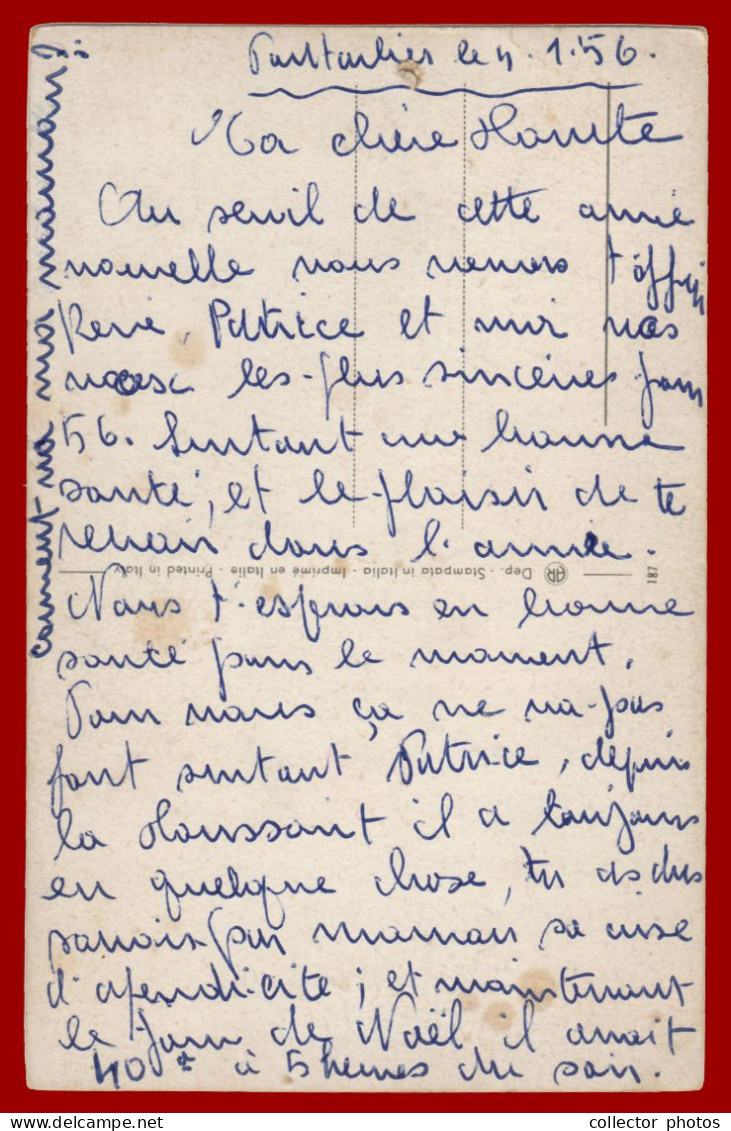 Pontarlier le 4.1.56.
Ma chère
Au seuil de cette année
nouvelle nous venons t'offrir
René, Patrice et moi nos
voeux les plus sincères pour
56. Surtout une bonne
santé, et le plaisir de te
revoir dans l'année.
187 AR Dep. - Stampata in Italia - Imprimé en Italie - Printed in Italy
Nous t'esperons en bonne
santé pour le moment.
Pour nous ça ne va pas
fort surtout Patrice, depuis
la Toussaint il a toujours
en quelque chose, tu as dus
savoir par maman sa crise
d'apendicite ; et maintenant
le jour de Noël il avait
40° à 5 heures du soir.
comment va ma maman ?
collector photos